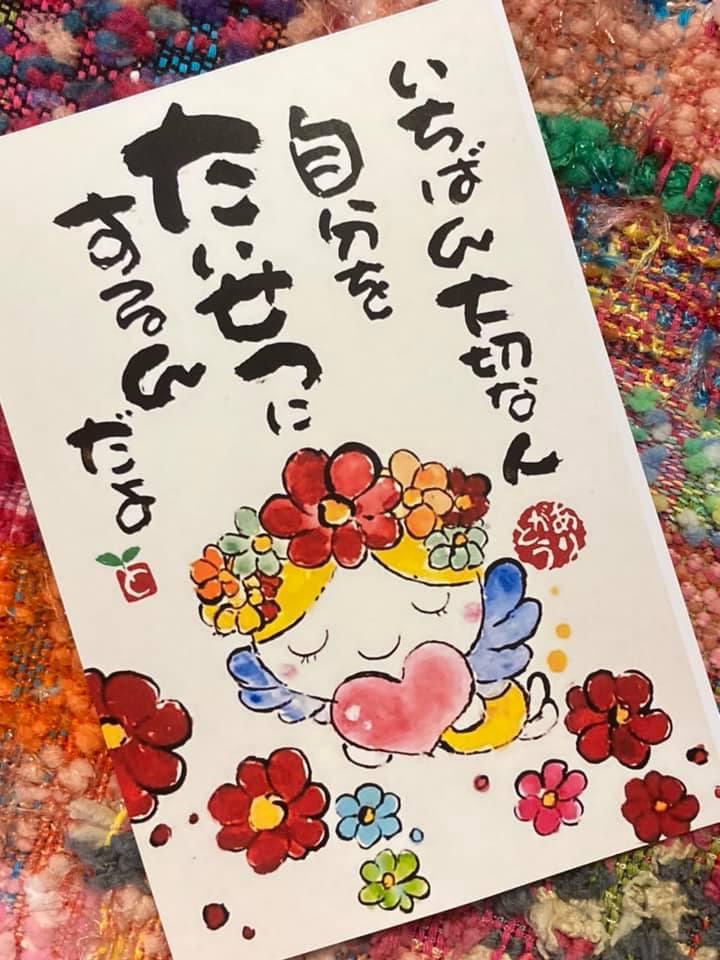 いちばん大切なん
自分を
たいせつに
するん
だよ
ありがとう
と